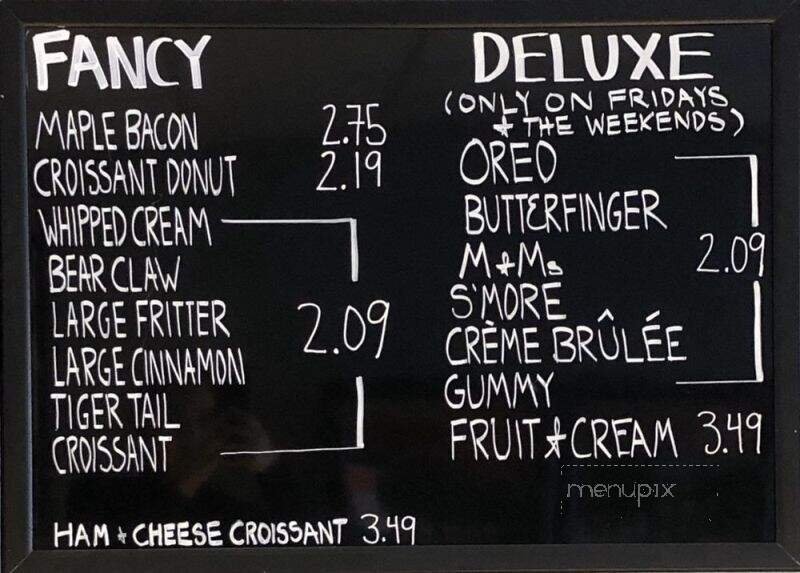 FANCY
MAPLE BACON 2.75
CROISSANT DONUT 2.19
WHIPPED CREAM
BEAR CLAW
LARGE FRITTER 2.09
LARGE CINNAMON
TIGER TAIL
CROISSANT
HAM & CHEESE CROISSANT 3.49
DELUXE
(ONLY ON FRIDAYS
& THE WEEKENDS)
OREO
BUTTERFINGER
M&Ms 2.09
S'MORE
CRÈME BRÛLÉE
GUMMY
FRUIT & CREAM 3.49
menupix